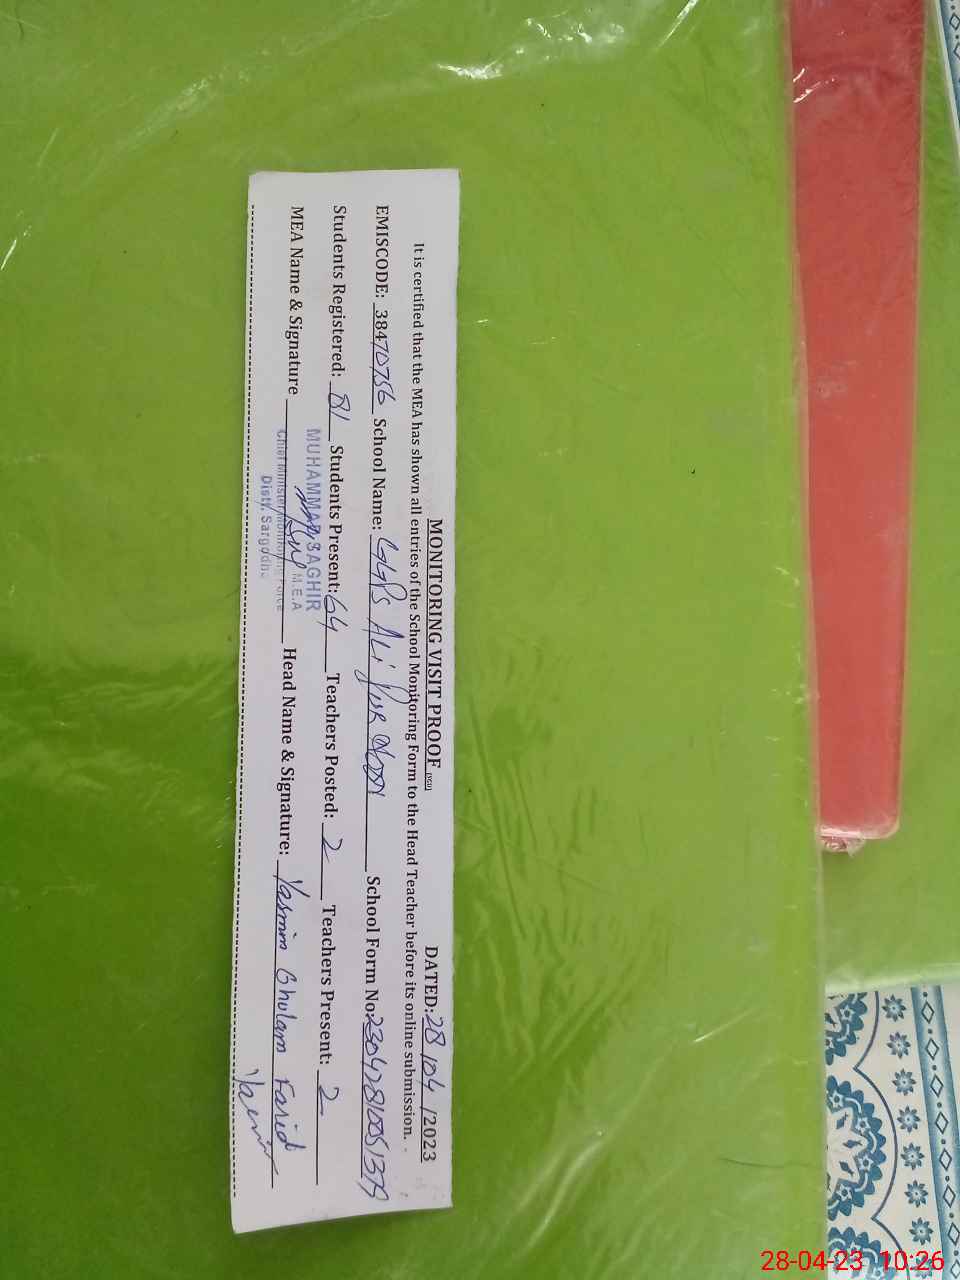 MONITORING VISIT PROOF (SGD) DATED: 28/04/2023
It is certified that the MEA has shown all entries of the School Monitoring Form to the Head Teacher before its online submission.
EMISCODE: 38470756 School Name: GGPS ALi PUR School Form No:
Students Registered: 81 Students Present: 64 Teachers Posted: 2 Teachers Present: 2
MEA Name & Signature Head Name & Signature: Yasmin Ghulam Farid
MUHAMMAD SAGHIR
M.E.A
Chief Minister Monitoring Force
Distt. Sargodha
28-04-23 10:26